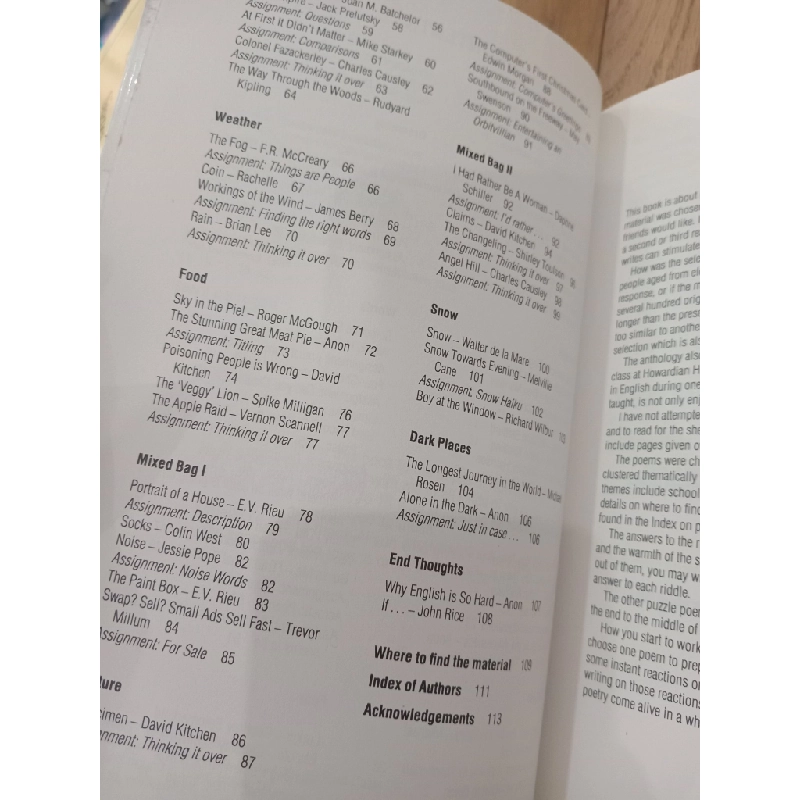 Jack Prelutsky 58
Assignment: Questions 59
At First It Didn't Matter – Mike Starkey 60
Assignment: Comparisons 61
Colonel Fazackerley – Charles Causley 62
Assignment: Thinking it over 63
The Way Through the Woods – Rudyard
Kipling 64
Weather
The Fog – F.R. McCreary 66
Assignment: Things are People 66
Coin – Rachelle 67
Workings of the Wind – James Berry 68
Assignment: Finding the right words 69
Rain – Brian Lee 70
Assignment: Thinking it over 70
Food
Sky in the Pie! – Roger McGough 71
The Stunning Great Meat Pie – Anon 72
Assignment: Titling 73
Poisoning People is Wrong – David
Kitchen 74
The 'Veggy' Lion – Spike Milligan 76
The Apple Raid – Vernon Scannell 77
Assignment: Thinking it over 77
Mixed Bag I
Portrait of a House – E.V. Rieu 78
Assignment: Description 79
Socks – Colin West 80
Noise – Jessie Pope 82
Assignment: Noise Words 82
The Paint Box – E.V. Rieu 83
Swap? Sell? Small Ads Sell Fast – Trevor
Millum 84
Assignment: For Sale 85
ture
cimen – David Kitchen 86
nment: Thinking it over 87
The Computer's First Christmas Card
Edwin Morgan 88
Assignment: Computer's Greetings
Southbound on the Freeway – May
Swenson 90
Assignment: Entertaining an
Orbitvillian 91
Mixed Bag II
I Had Rather Be A Woman – Daphne
Schiller 92
Assignment: I'd rather ... 92
Claims – David Kitchen 94
The Changeling – Shirley Toulson
Assignment: Thinking it over 97
Angel Hill – Charles Causley 98
Assignment: Thinking it over 99
Snow
Snow – Walter de la Mare 100
Snow Towards Evening – Melville
Cane 101
Assignment: Snow Haiku 102
Boy at the Window – Richard Wilbur 103
Dark Places
The Longest Journey in the World –
Rosen 104
Alone in the Dark – Anon 106
Assignment: Just in case ... 106
End Thoughts
Why English is So Hard – Anon 107
If ... – John Rice 108
Where to find the material 109
Index of Authors 111
Acknowledgements 113
This book is about
material was chosen
friends would like. I
a second or third re
writes can stimulate
How was the sele
people aged from el
response, or if the m
several hundred orig
longer than the pres
too similar to anothe
selection which is als
The anthology also
class at Howardian H
in English during one
taught, is not only enj
I have not attempte
and to read for the she
include pages given o
The poems were ch
clustered thematically
themes include school
details on where to find
found in the Index on p
The answers to the r
and the warmth of the s
out of them, you may w
answer to each riddle.
The other puzzle poe
the end to the middle of
How you start to work
choose one poem to prep
some instant reactions or
writing on those reactions
poetry come alive in a wh